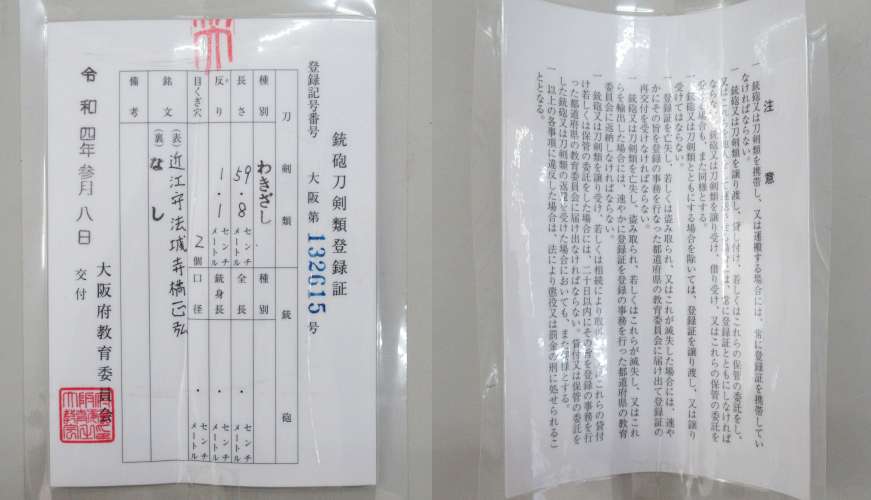 銃砲刀剣類登録証
登録記号番号 大阪第 132615 号
刀剣類
銃砲
種別 わきざし
種別
長さ 59.8 センチメートル
全長 ・ センチメートル
反り 1.1 センチメートル
銃身長 ・ センチメートル
目くぎ穴 2個
口径 ・ センチメートル
銘文 (表) 近江守法城寺橘正弘
(裏) なし
備考
令和四年参月八日 交付
大阪府教育委員会
注意
一 銃砲又は刀剣類を携帯し、又は運搬する場合には、常に登録証を携帯してい
なければならない。
一 銃砲又は刀剣類を譲り渡し、貸し付け、若しくはこれらの保管の委託をし、
又はこれらを他人をして 場合には、常に登録証とともにしなければ
ならない。銃砲又は刀剣類を譲り受け、借り受け、又はこれらの保管の委託を
場合も、また同様とする。
一 銃砲又は刀剣類とともにする場合を除いては、登録証を譲り渡し、又は譲り
受けてはならない。
一 登録証を亡失し、若しくは盗み取られ、又はこれが滅失した場合には、速や
かにその旨を登録の事務を行なった都道府県の教育委員会に届け出て登録証の
再交付を受けなければならない。
一 銃砲又は刀剣類を亡失し、盗み取られ、若しくはこれらが滅失し、又はこれ
らを輸出した場合には、速やかに登録証を登録の事務を行った都道府県の教育
委員会に返納しなければならない。
一 銃砲又は刀剣類を譲り受け、若しくは相続により取得し、 これらの貸付
け若しくは保管の委託をした場合には、二十日以内にその旨を登録の事務を行
った都道府県の教育委員会に届け出なければならない。貸付又は保管の委託を
した銃砲又は刀剣類の返還を受けた場合においても、また同様とする。
一 以上の各事項に違反した場合は、法により懲役又は罰金の刑に処せられるこ
ととなる。